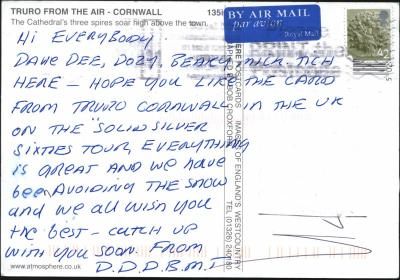 TRURO FROM THE AIR - CORNWALL
The Cathedral's three spires soar high above the town.
135
BY AIR MAIL
par avion
Royal Mail
42
HI EVERYBODY
DAVE DEE, DOZY, BEAKY, MICK, TICH
HERE - HOPE YOU LIKE THE CARD
FROM TRURO CORNWALL IN THE UK
ON THE "SOLID SILVER
SIXTIES TOUR. EVERYTHING
is GREAT AND we have
been AVOIDING THE SNOW
and we ALL WISH YOU
the best - CATCH UP
WITH YOU SOON. FROM
D.D.D.B.M.T
POSTCARDS IMAGES OF ENGLAND'S WESTCOUNTRY
TEL (01326) 240180
www.atmosphere.co.uk